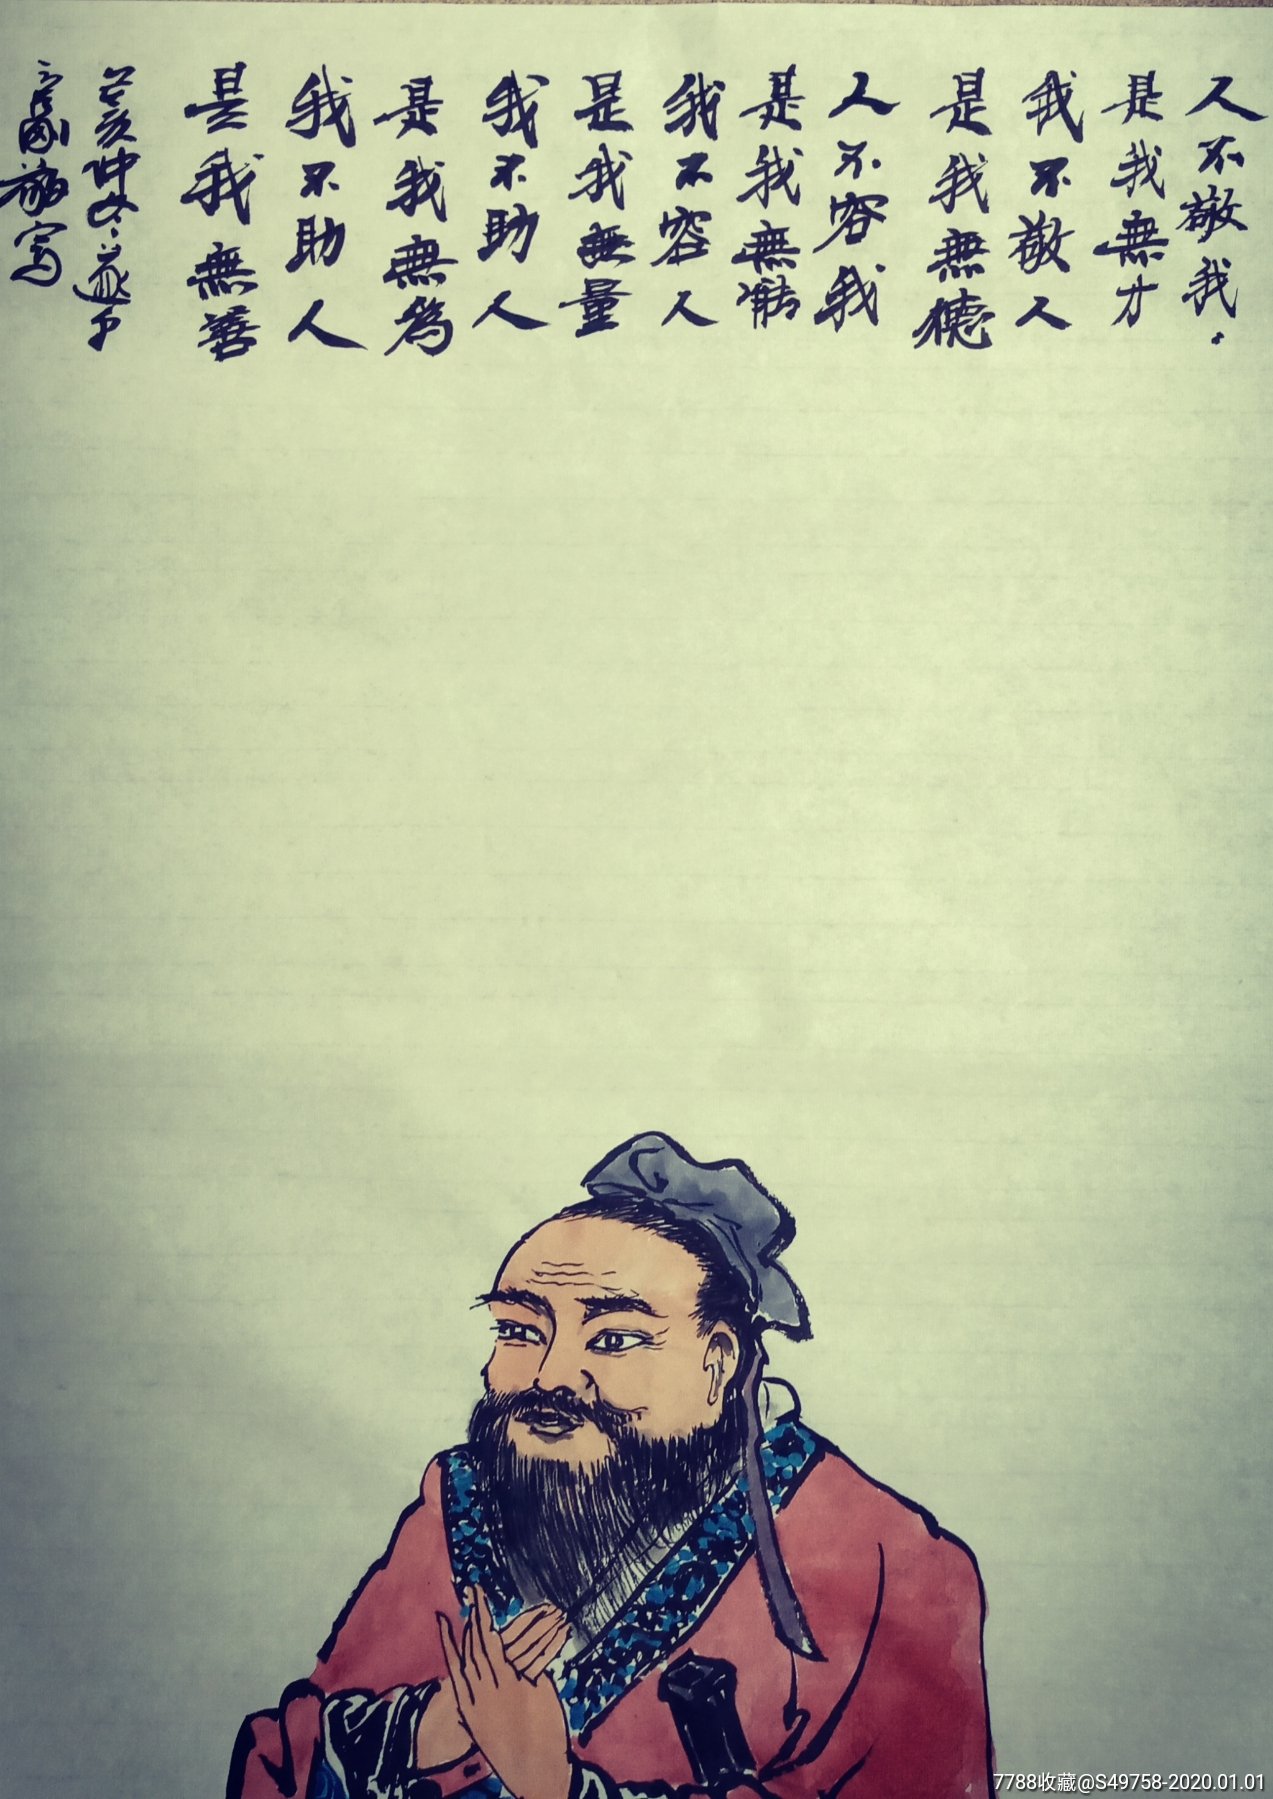 人不敬我
是我無才
我不敬人
是我無德
人不容我
是我無能
我不容人
是我無量
我不助人
是我無為
我不助人
是我無善
己亥仲冬
寫
7788收藏@S49758-2020.01.01